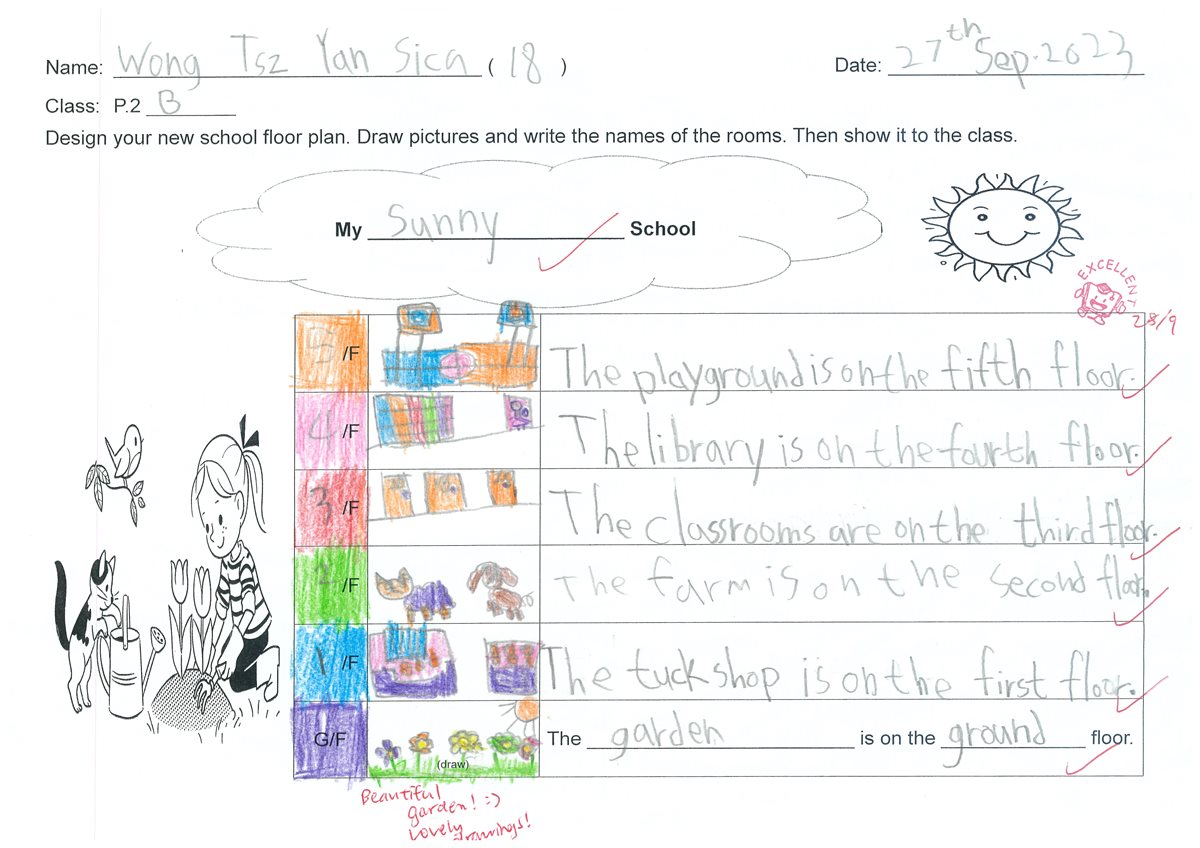 Name: Wong Tsz Yan Sica ( 18 ) Date: 27th Sep. 2023
Class: P.2 B
Design your new school floor plan. Draw pictures and write the names of the rooms. Then show it to the class.
My Sunny School
EXCELLENT
28/9
5/F The playground is on the fifth floor.
4/F The library is on the fourth floor.
3/F The classrooms are on the third floor.
2/F The farm is on the second floor.
1/F The tuck shop is on the first floor.
G/F (draw) The garden is on the ground floor.
Beautiful
garden! :)
Lovely drawings!